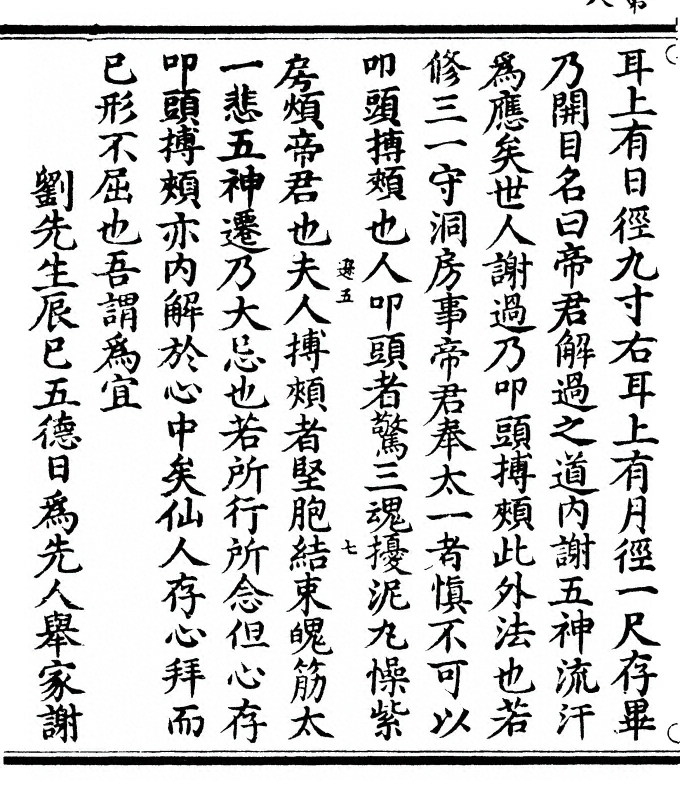 耳上有日徑九寸右耳上有月徑一尺存畢
乃開目名曰帝君解過之道內謝五神流汗
爲應矣世人謝過乃叩頭搏頰此外法也若
修三一守洞房事帝君奉太一者慎不可以
叩頭搏頰也人叩頭者驚三魂擾泥丸懆紫
五
七
房煩帝君也夫人搏頰者堅胞結束魄筋太
一悲五神遷乃大忌也若所行所念但心存
叩頭搏頰亦內解於心中矣仙人存心拜而
已形不屈也吾謂爲宜
劉先生辰巳五德日爲先人舉家謝